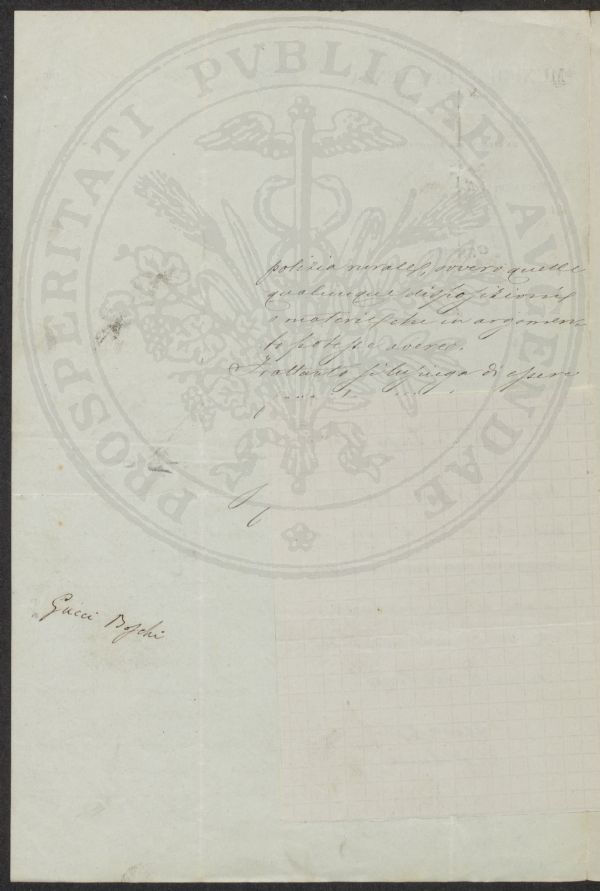 PROSPERITATI PVBLICAE AVGENDAE
polizia rurale, ovvero quelle
qualunque disposizioni
o materie che in argomen-
to potesse avere.
Frattanto si lusinga di essere
Gucci Boschi